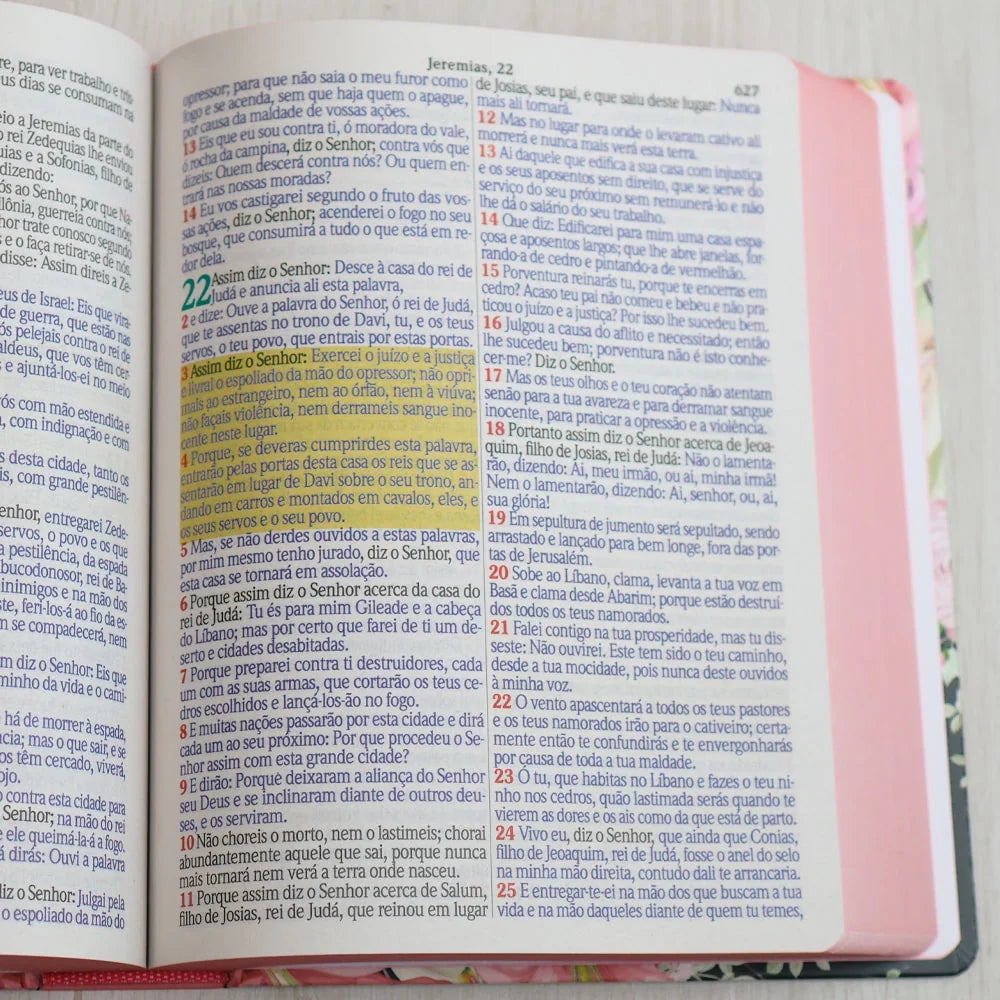 re, para ver trabalho e tris-
us dias se consumam na
eio a Jeremias da parte do
o rei Zedequias lhe enviou
uias e a Sofonias, filho de
dizendo:
ós ao Senhor, por que Na-
lônia, guerreia contra nós;
hor trate conosco segundo
s e o faça retirar-se de nós.
disse: Assim direis a Ze-
eus de Israel: Eis que vira-
de guerra, que estão nas
s pelejais contra o rei de
aldeus, que vos têm cer-
e ajuntá-los-ei no meio
ós com mão estendida e
a, com indignação e com
s desta cidade, tanto os
is, com grande pestilên-
enhor, entregarei Zede-
servos, o povo e os que
a pestilência, da espada
bucodonosor, rei de Ba-
inimigos e na mão dos
ste, feri-los-á ao fio da es-
m se compadecerá, nem
m diz o Senhor: Eis que
minho da vida e o cami-
há de morrer à espada,
ncia; mas o que sair, e se
os têm cercado, viverá,
ojo.
contra esta cidade para
Senhor; na mão do rei
ele queimá-la-á a fogo.
á dirás: Ouvi a palavra
diz o Senhor: Julgai pela
o espoliado da mão do
Jeremias, 22
627
opressor; para que não saia o meu furor como
fogo e se acenda, sem que haja quem o apague,
por causa da maldade de vossas ações.
13 Eis que eu sou contra ti, ó moradora do vale,
ó rocha da campina, diz o Senhor; contra vós que
dizeis: Quem descerá contra nós? Ou quem en-
trará nas nossas moradas?
14 Eu vos castigarei segundo o fruto das vos-
sas ações, diz o Senhor; acenderei o fogo no seu
bosque, que consumirá a tudo o que está em re-
dor dela.
22 Assim diz o Senhor: Desce à casa do rei de
Judá e anuncia ali esta palavra,
2 e dize: Ouve a palavra do Senhor, ó rei de Judá,
que te assentas no trono de Davi, tu, e os teus
servos, o teu povo, que entrais por estas portas.
3 Assim diz o Senhor: Exercei o juízo e a justiça
e livrai o espoliado da mão do opressor; não opri-
mais ao estrangeiro, nem ao órfão, nem à viúva;
não façais violência, nem derrameis sangue ino-
cente neste lugar.
4 Porque, se deveras cumprirdes esta palavra,
entrarão pelas portas desta casa os reis que se as-
sentarão em lugar de Davi sobre o seu trono, an-
dando em carros e montados em cavalos, eles, e
os seus servos e o seu povo.
5 Mas, se não derdes ouvidos a estas palavras,
por mim mesmo tenho jurado, diz o Senhor, que
esta casa se tornará em assolação.
6 Porque assim diz o Senhor acerca da casa do
rei de Judá: Tu és para mim Gileade e a cabeça
do Líbano; mas por certo que farei de ti um de-
serto e cidades desabitadas.
7 Porque prepararei contra ti destruidores, cada
um com as suas armas, que cortarão os teus ce-
dros escolhidos e lançá-los-ão no fogo.
8 E muitas nações passarão por esta cidade e dirá
cada um ao seu próximo: Por que procedeu o Se-
nhor assim com esta grande cidade?
9 E dirão: Porque deixaram a aliança do Senhor
seu Deus e se inclinaram diante de outros deu-
ses, e os serviram.
10 Não choreis o morto, nem o lastimeis; chorai
abundantemente aquele que sai, porque nunca
mais tornará nem verá a terra onde nasceu.
11 Porque assim diz o Senhor acerca de Salum,
filho de Josias, rei de Judá, que reinou em lugar
de Josias, seu pai, e que saiu deste lugar: Nunca
mais ali tornará.
12 Mas no lugar para onde o levaram cativo ali
morrerá e nunca mais verá esta terra.
13 Ai daquele que edifica a sua casa com injustiça
e os seus aposentos sem direito, que se serve do
serviço do seu próximo sem remunerá-lo e não
lhe dá o salário do seu trabalho.
14 Que diz: Edificarei para mim uma casa espa-
çosa e aposentos largos; que lhe abre janelas, for-
rando-a de cedro e pintando-a de vermelhão.
15 Porventura reinarás tu, porque te encerras em
cedro? Acaso teu pai não comeu e bebeu e não pra-
ticou o juízo e a justiça? Por isso lhe sucedeu bem.
16 Julgou a causa do aflito e necessitado; então
lhe sucedeu bem; porventura não é isto conhe-
cer-me? Diz o Senhor.
17 Mas os teus olhos e o teu coração não atentam
senão para a tua avareza e para derramar sangue
inocente, para praticar a opressão e a violência.
18 Portanto assim diz o Senhor acerca de Jeoa-
quim, filho de Josias, rei de Judá: Não o lamenta-
rão, dizendo: Ai, meu irmão, ou ai, minha irmã!
Nem o lamentarão, dizendo: Ai, senhor, ou, ai,
sua glória!
19 Em sepultura de jumento será sepultado, sendo
arrastado e lançado para bem longe, fora das por-
tas de Jerusalém.
20 Sobe ao Líbano, clama, levanta a tua voz em
Basã e clama desde Abarim; porque estão destruí-
dos todos os teus namorados.
21 Falei contigo na tua prosperidade, mas tu dis-
seste: Não ouvirei. Este tem sido o teu caminho,
desde a tua mocidade, pois nunca deste ouvidos
à minha voz.
22 O vento apascentará a todos os teus pastores
e os teus namorados irão para o cativeiro; certa-
mente então te confundirás e te envergonharás
por causa de toda a tua maldade.
23 Ó tu, que habitas no Líbano e fazes o teu ni-
nho nos cedros, quão lastimada serás quando te
vierem as dores e os ais como da que está de parto.
24 Vivo eu, diz o Senhor, que ainda que Conias,
filho de Jeoaquim, rei de Judá, fosse o anel do selo
na minha mão direita, contudo dali te arrancaria.
25 E entregar-te-ei na mão dos que buscam a tua
vida e na mão daqueles diante de quem tu temes,